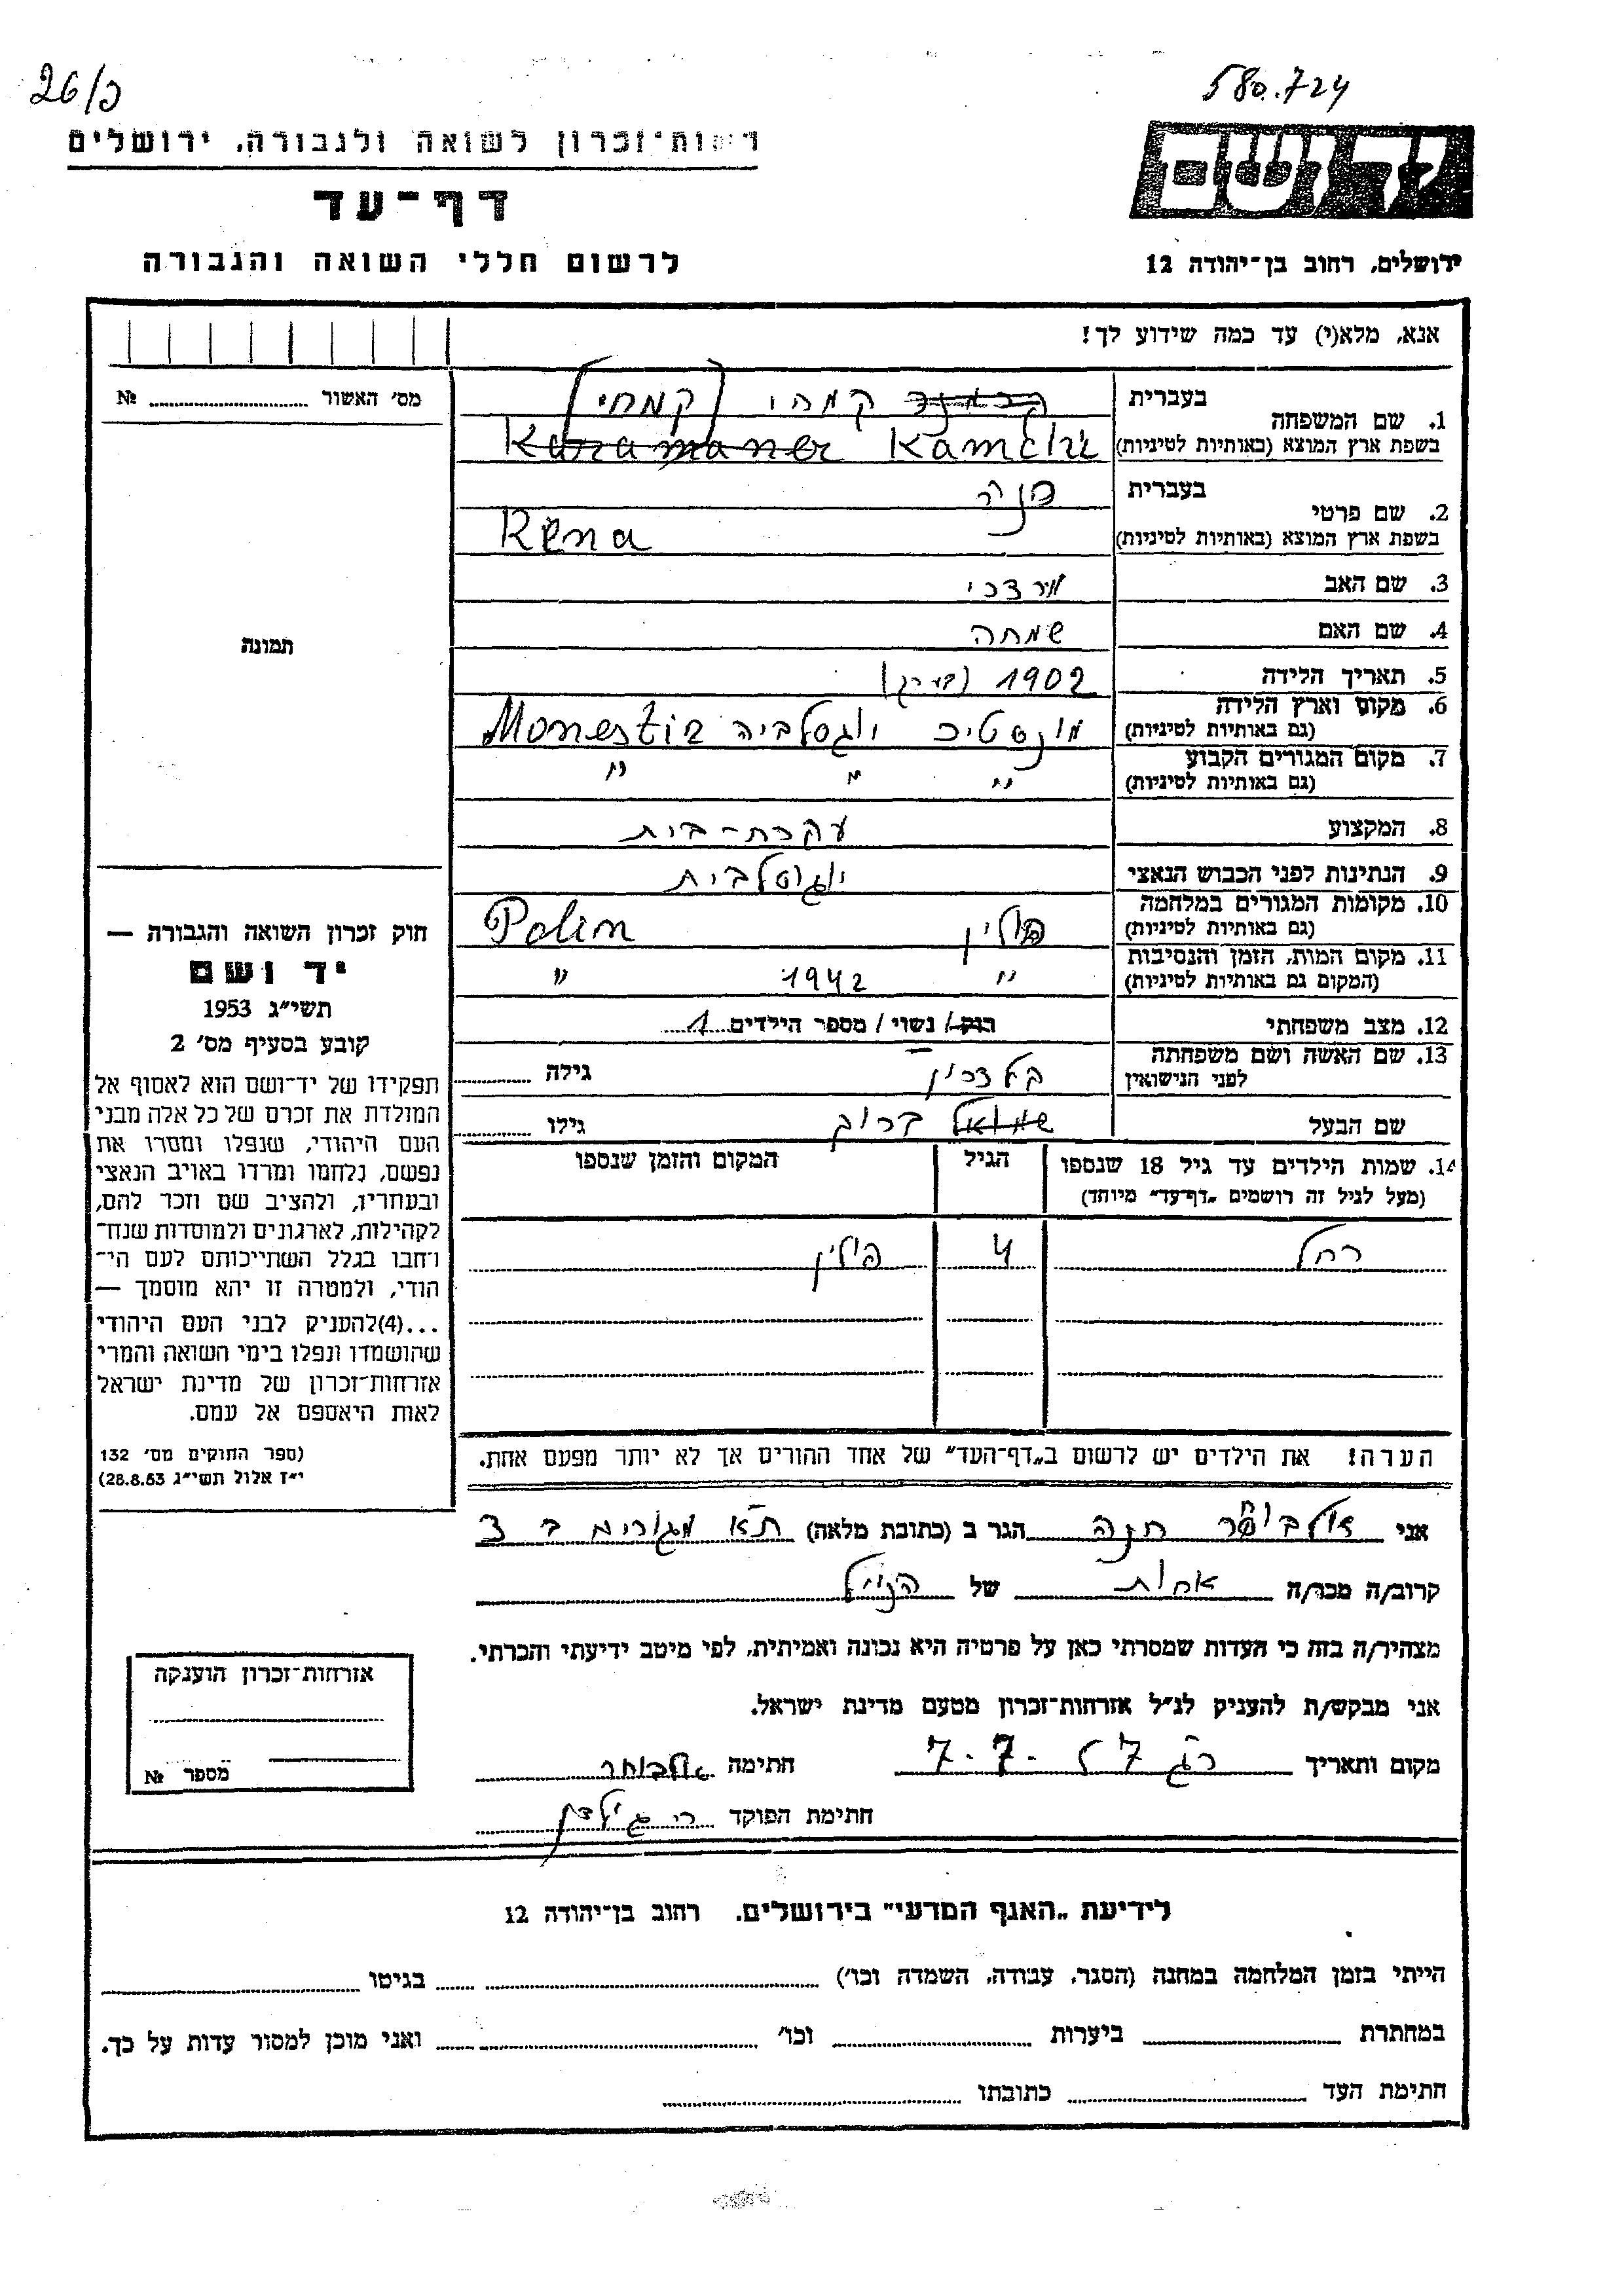 26/כ
580.724
רשות־זכרון לשואה ולגבורה, ירושלים
יד ושם
דף־עד
לרשום חללי השואה והגבורה
ירושלים, רחוב בן־יהודה 12
אנא, מלא(י) עד כמה שידוע לך!
מס׳ האשור ........ №
בעברית קמהי [קמחי]
1. שם המשפחה
בשפת ארץ המוצא (באותיות לטיניות) Kamchi
בעברית רנה
2. שם פרטי
בשפת ארץ המוצא (באותיות לטיניות) Rena
3. שם האב מרדכי
4. שם האם שמחה
5. תאריך הלידה 1902
6. מקום וארץ הלידה מונסטיר יוגסלביה Monestir
(גם באותיות לטיניות)
7. מקום המגורים הקבוע " " "
(גם באותיות לטיניות)
8. המקצוע עקרת-בית
9. הנתינות לפני הכבוש הנאצי יוגוסלבית
10. מקומות המגורים במלחמה פולין Polin
(גם באותיות לטיניות)
11. מקום המות, הזמן והנסיבות " 1942 "
(המקום גם באותיות לטיניות)
12. מצב משפחתי רוק/ נשוי/ מספר הילדים 1
13. שם האשה ושם משפחתה גילה ........
לפני הנישואין
שם הבעל שמואל ברוך גילו ........
14. שמות הילדים עד גיל 18 שנספו הגיל המקום והזמן שנספו
(מעל לגיל זה רושמים „דף־עד" מיוחד)
רחל 4 פולין
תמונה
חוק זכרון השואה והגבורה —
יד ושם
תשי״ג 1953
קובע בסעיף מס׳ 2
תפקידו של יד־ושם הוא לאסוף אל
המולדת את זכרם של כל אלה מבני
העם היהודי, שנפלו ומסרו את
נפשם, נלחמו ומרדו באויב הנאצי
ובעוזריו, ולהציב שם וזכר להם,
לקהילות, לארגונים ולמוסדות שנח־
רחבו בגלל השתייכותם לעם הי־
הודי, ולמטרה זו יהא מוסמך —
...(4)להעניק לבני העם היהודי
שהושמדו ונפלו בימי השואה והמרי
אזרחות־זכרון של מדינת ישראל
לאות היאספם אל עמם.
(ספר החוקים מס׳ 132
י״ז אלול תשי״ג 28.8.53)
הערה! את הילדים יש לרשום ב„דף־העד" של אחד ההורים אך לא יותר מפעם אחת.
אני אלבוחר חנה הגר ב (כתובת מלאה) ת״א מגורים ב 3
קרוב/ה מכר/ה אחות של הנ״ל
מצהיר/ה בזה כי העדות שמסרתי כאן על פרטיה היא נכונה ואמיתית, לפי מיטב ידיעתי והכרתי.
אני מבקש/ת להעניק לנ״ל אזרחות־זכרון מטעם מדינת ישראל.
מקום ותאריך רג 7.7.57 חתימה אלבוחר
חתימת הפוקד
אזרחות־זכרון הוענקה
מספר №
לידיעת „האגף המדעי" בירושלים. רחוב בן־יהודה 12
הייתי בזמן המלחמה במחנה (הסגר, עבודה, השמדה וכו׳) ........ בגיטו ........
במחתרת ........ ביערות ........ וכו׳ ........ ואני מוכן למסור עדות על כך.
חתימת העד ........ כתובתו ........